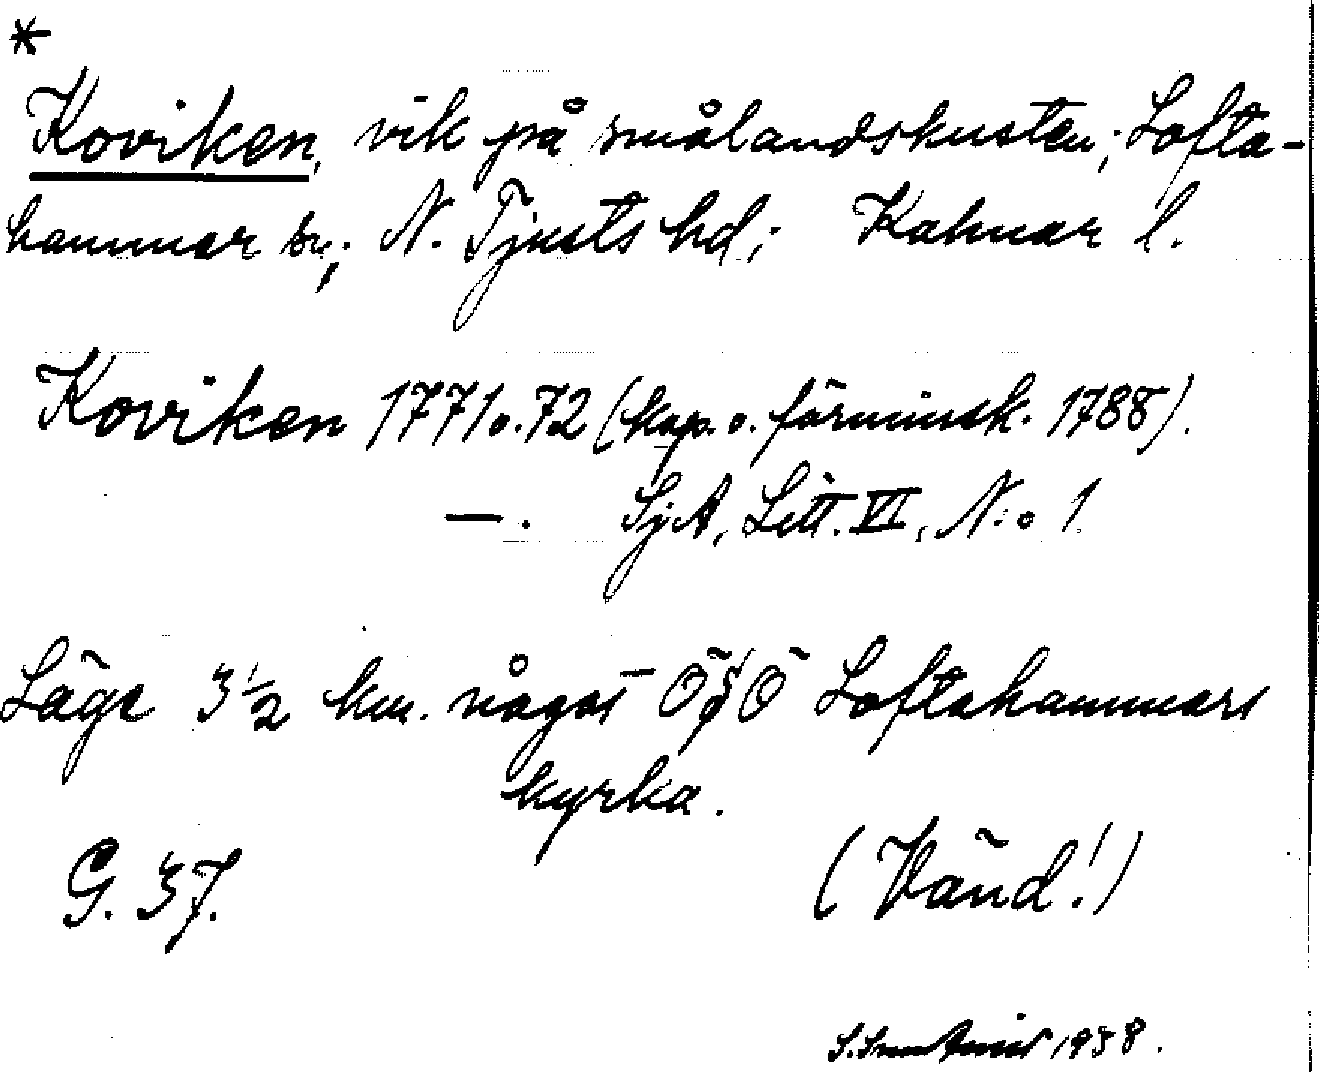 *
Koviken, vik på smålandskusten; Lofta-
hammar sn; N. Tjusts hd; Kalmar l.
Koviken 1771 o. 72 (kop. o. förminsk. 1788).
—. SjA, Litt. VI, N:o 1.
Läge 3 1/2 km. något Ö Loftahammars
kyrka.
G. 37.
(Vänd!)
1938.